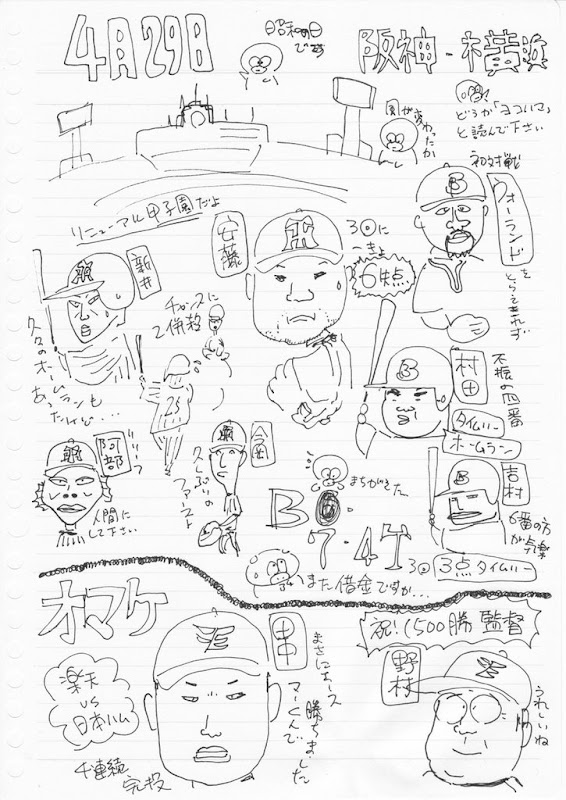 4月29日
昭和の日
です
阪神-横浜
どうか「ヨコハマ」
と読んで下さい
図が変わったか
初対戦
ウォーランド
をとらえきれず
リニューアル甲子園だよ
安藤
3回に
一挙
6失点
新井
チャンスに
2併殺
久々のホームランも
あったけど...
25
村田
不振の四番
タイムリー
ホームラン
リリーフ
阿部
人間に
して下さい
今岡
久しぶりの
ファースト
まちがえた
B
7-4T
吉村
6番の方
が気楽
3回
3点タイムリー
また借金ですか...
オマケ
楽天
VS
日本ハム
田中
まさにエース
マーくんで
勝ちました
4連続
完投
祝!1500勝監督
野村
うれしいね